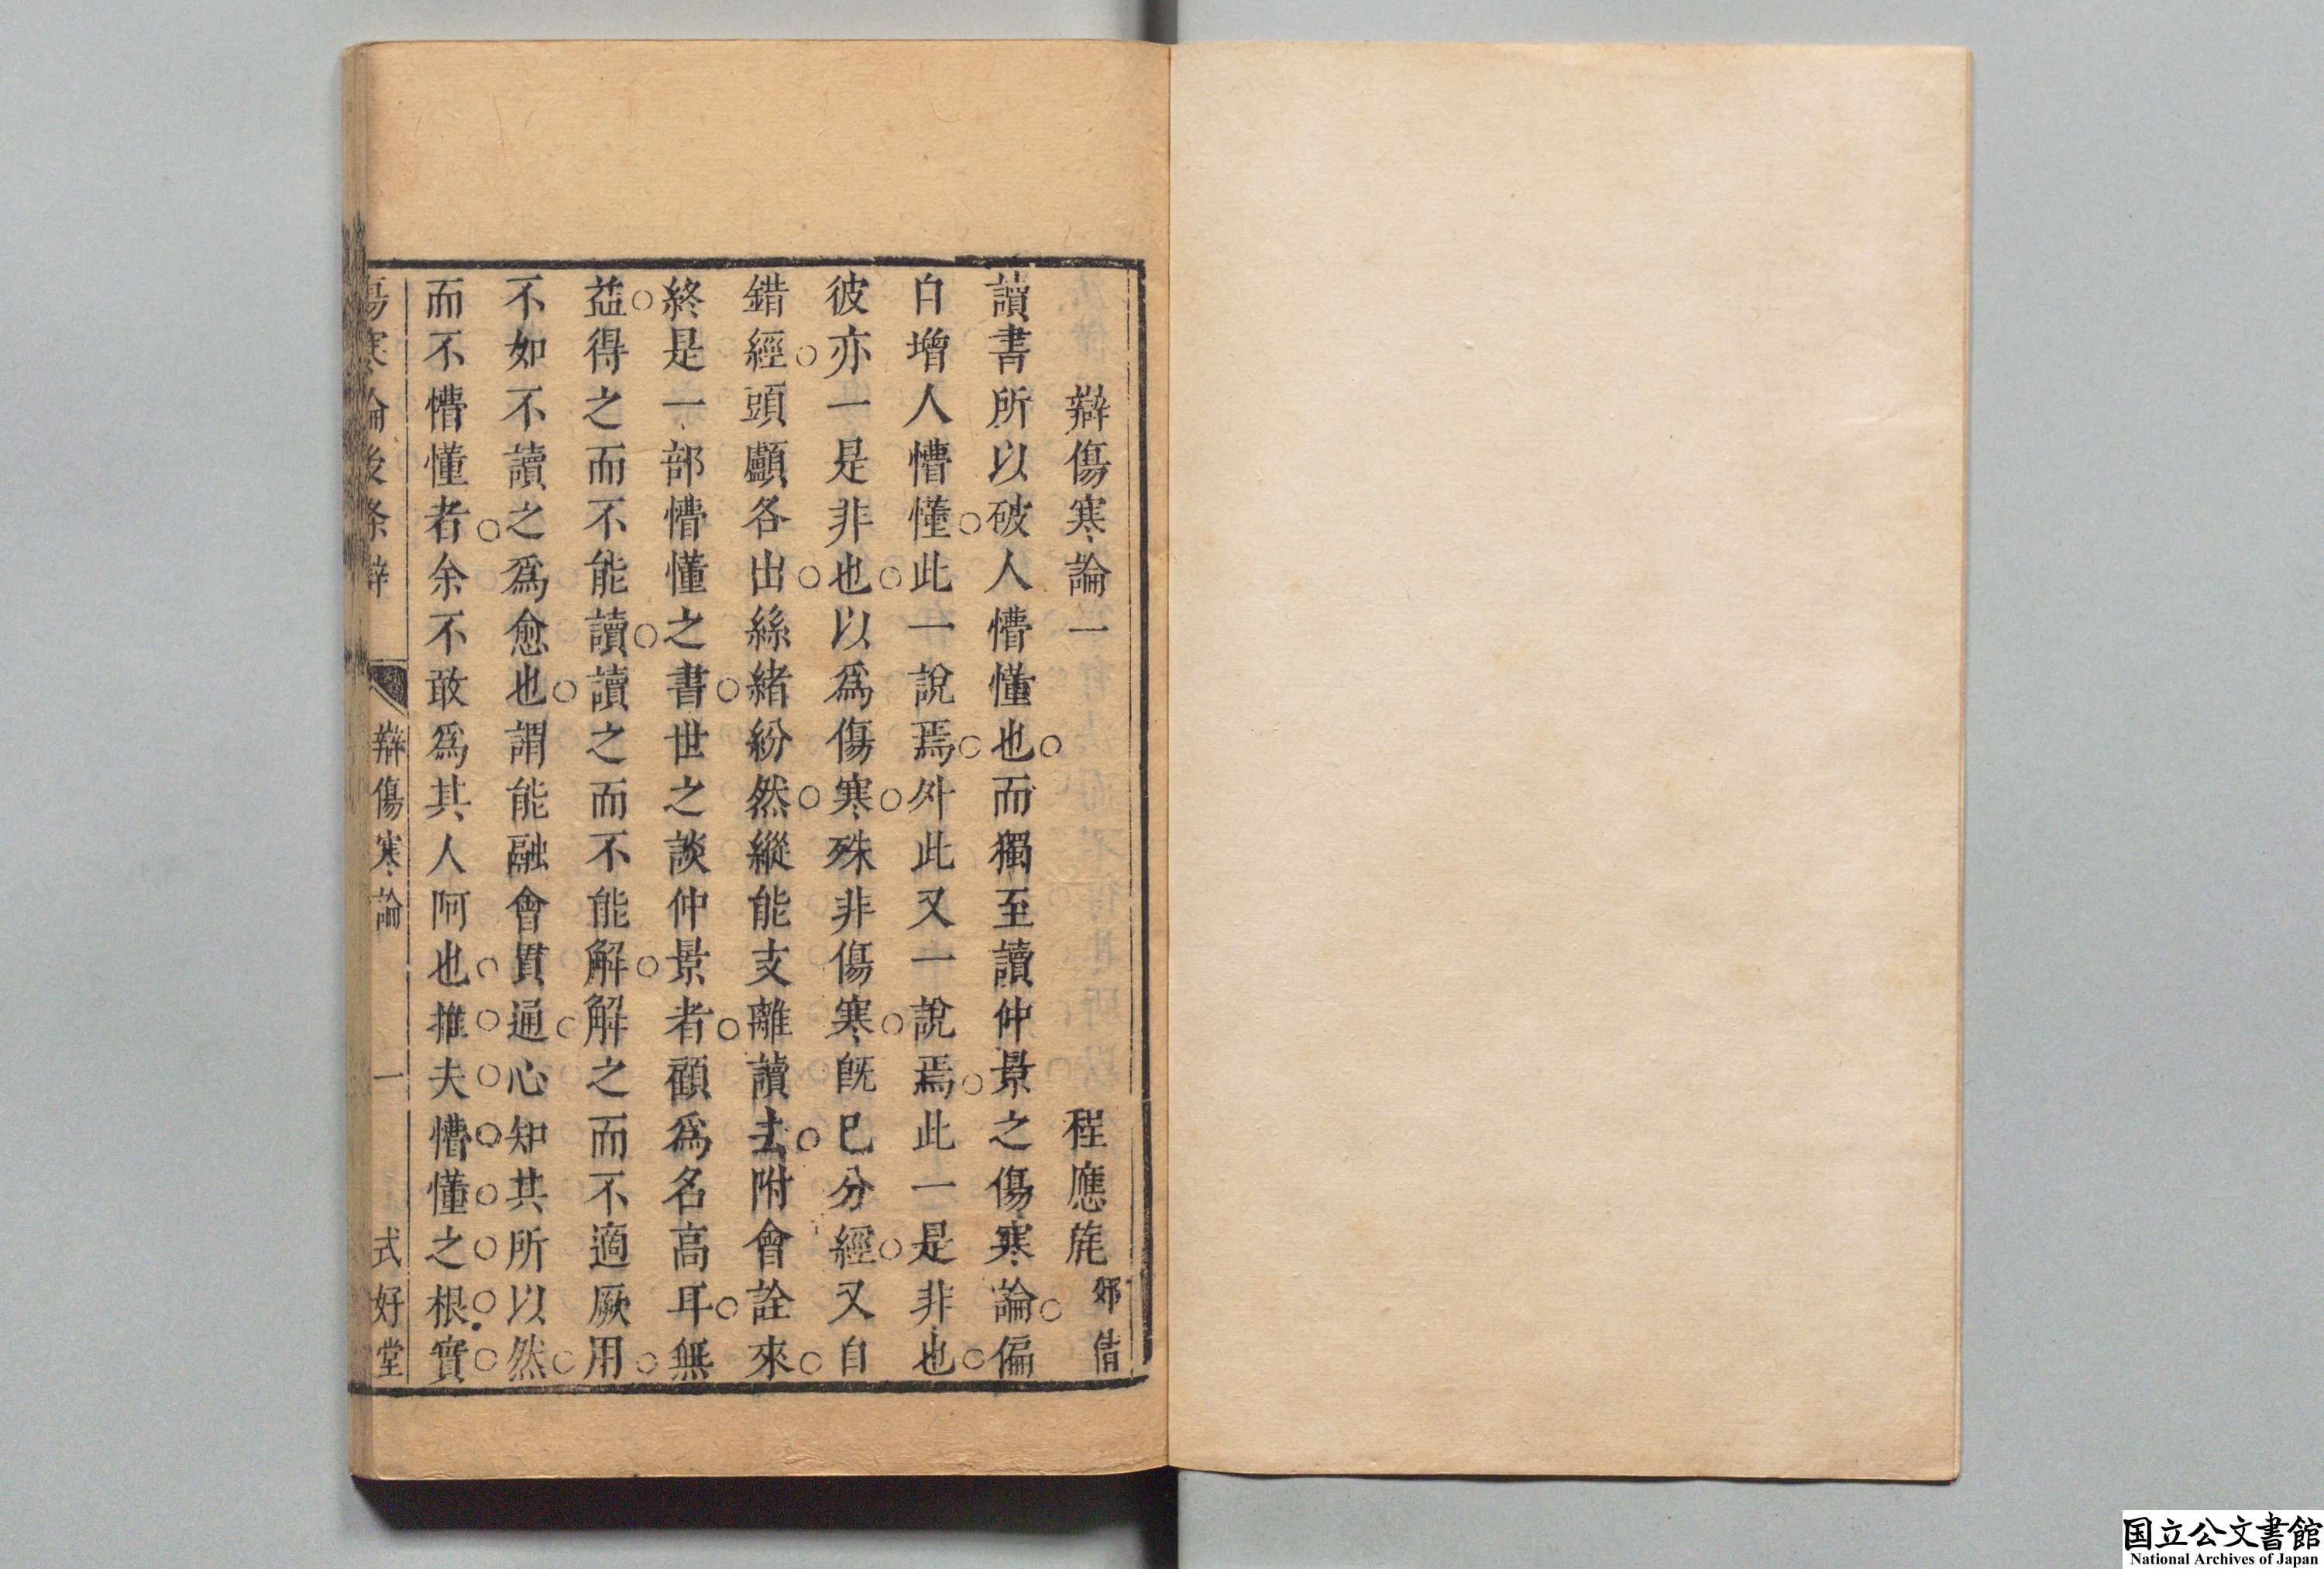 辯傷寒論一　程應旄郊倩
讀書所以破人懵懂也○而獨至讀仲景之傷寒論○偏
自增人懵懂○此一說焉○外此又一說焉○此一是非也○
彼亦一是非也○以爲傷寒○殊非傷寒○旣已分經○又自
錯經○頭顱各出○絲緒紛然○縱能支離讀去○附會詮來○
終是一部懵懂之書○世之談仲景者○顧爲名高耳○無
益○得之而不能讀○讀之而不能解○解之而不適厥用○
不如不讀之爲愈也○謂能融會貫通○心知其所以然○
而不懵懂者○余不敢爲其人阿也○推○夫○懵○懂○之○根○實○
傷寒論後条辯　辯傷寒論　一　式好堂
国立公文書館
National Archives of Japan